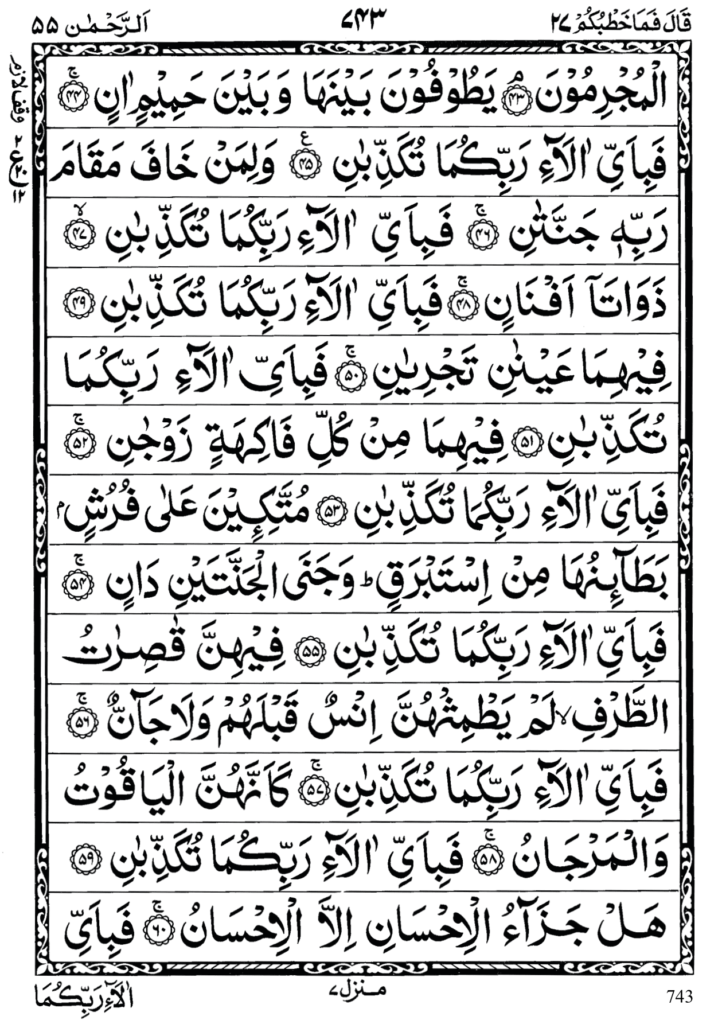 قَالَ فَمَا خَطْبُكُمْ ٢٧ ٧٤٣ اَلرَّحْمٰن ٥٥
الْمُجْرِمُوْنَ ﴿٤٣﴾ۘ يَطُوْفُوْنَ بَيْنَهَا وَبَيْنَ حَمِيْمٍ اٰنٍ ﴿٤٤﴾ۚ
فَبِاَيِّ اٰلَآءِ رَبِّكُمَا تُكَذِّبٰنِ ﴿٤٥﴾ع وَلِمَنْ خَافَ مَقَامَ
رَبِّهٖ جَنَّتٰنِ ﴿٤٦﴾ۚ فَبِاَيِّ اٰلَآءِ رَبِّكُمَا تُكَذِّبٰنِ ﴿٤٧﴾ۙ
ذَوَاتَآ اَفْنَانٍ ﴿٤٨﴾ۚ فَبِاَيِّ اٰلَآءِ رَبِّكُمَا تُكَذِّبٰنِ ﴿٤٩﴾
فِيْهِمَا عَيْنٰنِ تَجْرِيٰنِ ﴿٥٠﴾ۚ فَبِاَيِّ اٰلَآءِ رَبِّكُمَا
تُكَذِّبٰنِ ﴿٥١﴾ فِيْهِمَا مِنْ كُلِّ فَاكِهَةٍ زَوْجٰنِ ﴿٥٢﴾ۚ
فَبِاَيِّ اٰلَآءِ رَبِّكُمَا تُكَذِّبٰنِ ﴿٥٣﴾ مُتَّكِـِٕيْنَ عَلٰى فُرُشٍۭ
بَطَآئِنُهَا مِنْ اِسْتَبْرَقٍ ؕ وَجَنَى الْجَنَّتَيْنِ دَانٍ ﴿٥٤﴾ۚ
فَبِاَيِّ اٰلَآءِ رَبِّكُمَا تُكَذِّبٰنِ ﴿٥٥﴾ فِيْهِنَّ قٰصِرٰتُ
الطَّرْفِ ۙ لَمْ يَطْمِثْهُنَّ اِنْسٌ قَبْلَهُمْ وَلَا جَآنٌّ ﴿٥٦﴾ۚ
فَبِاَيِّ اٰلَآءِ رَبِّكُمَا تُكَذِّبٰنِ ﴿٥٧﴾ۚ كَاَنَّهُنَّ الْيَاقُوْتُ
وَالْمَرْجَانُ ﴿٥٨﴾ۚ فَبِاَيِّ اٰلَآءِ رَبِّكُمَا تُكَذِّبٰنِ ﴿٥٩﴾
هَلْ جَزَآءُ الْاِحْسَانِ اِلَّا الْاِحْسَانُ ﴿٦٠﴾ۚ فَبِاَيِّ
743 منزل ٧ اٰلَآءِ رَبِّكُمَا
وقف لازم